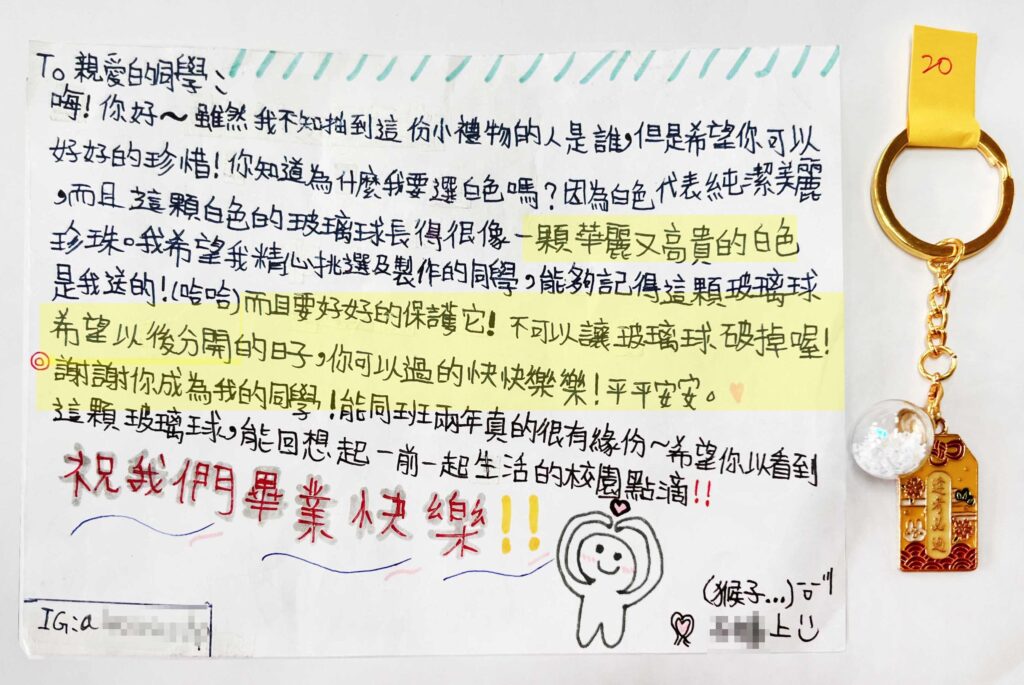 To 親愛的同學：
嗨！你好～雖然我不知抽到這份小禮物的人是誰，但是希望你可以
好好的珍惜！你知道為什麼我要選白色嗎？因為白色代表純潔美麗
，而且這顆白色的玻璃球長得很像一顆華麗又高貴的白色
珍珠。我希望我精心挑選及製作的同學，能夠記得這顆玻璃球
是我送的！(哈哈)而且要好好的保護它！不可以讓玻璃球破掉喔！
希望以後分開的日子，你可以過的快快樂樂！平平安安。
謝謝你成為我的同學！能同班兩年真的很有緣份～希望你以看到
這顆玻璃球，能回想起一前一起生活的校園點滴!!
祝我們畢業快樂!!
(猴子...)
上
IG:a
20
逢考必過